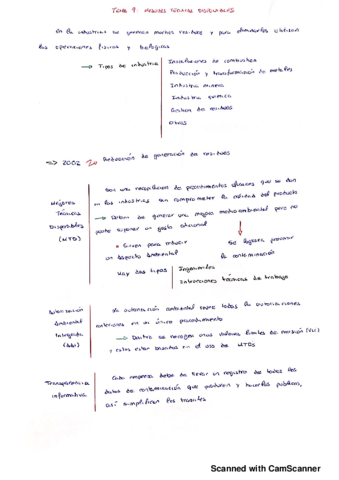 TEMA 9: MEJORES TÉCNICAS DISPONIBLES
En la industrias se generan muchos residuos y para eliminarlos utilizan
las operaciones físicas y biológicas
→ Tipos de industria
Instalaciones de combustión
Producción y transformación de metales
Industria minera
Industria química
Gestión de residuos
Otras
⇒ 2002 Reducción de generación de residuos
Mejores
Técnicas
Disponibles
(MTD)
Son una recopilación de procedimientos eficaces que se dan
en las industrias sin comprometer la calidad del producto
→ Deben de generar una mejora medioambiental pero no
puede suponer un gasto adicional
• Sirven para reducir
un aspecto ambiental
Se logrará prevenir
la contaminación
Hay dos tipos
Ingenierías
Intenciones técnicas de trabajo
Autorización
Ambiental
Integrada
(AAI)
La autorización ambiental reúne todas la autorizaciones
anteriores en un único procedimiento
→ Dentro se recogen unos valores límites de emisión (VLE)
y estos están basados en el uso de MTDs
Transparencia
informativa
Cada empresa debe de llevar un registro de todos los
datos de contaminación que producen y hacerlos públicos,
así simplifican los trámites
Scanned with CamScanner